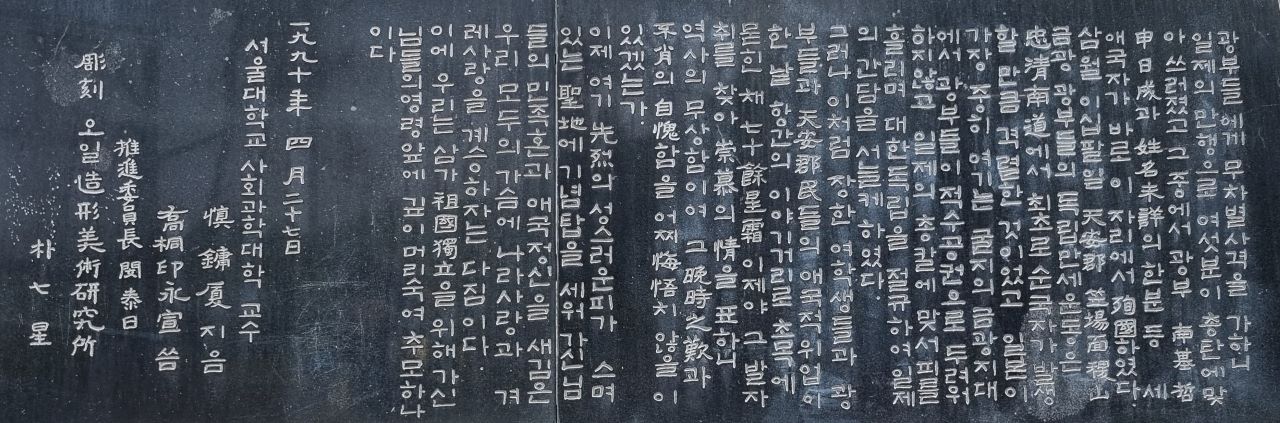 광부들에게 무차별사격을 가하니
일제의 만행으로 여섯분이 총탄에맞
아 쓰러졌고 그중에서 광부 南基哲
申日成과 姓名未詳의 한분 등 세
애국자가 바로 이 자리에서 殉國하였다
삼월 이십팔일 天安郡 笠場面 稷山
금광 광부들의 독립만세운동은
忠清南道에서 최초로 순국자가 발생
할 만큼 격렬한 것이었고 일본이
가장 중히 여기는 굴지의 금광지대
에서 광부들이 적수공권으로 두려워
하지않고 일제의 총칼에 맞서 피를
흘리며 대한독립을 절규하여 일제
의 간담을 서늘케 하였다
그러나 이처럼 장한 여학생들과 광
부들과 天安郡民들의 애국적위업이
한낱 항간의 이야기거리로 초목에
묻힌 채 七十餘星霜 이제야 그 발자
취를 찾아 崇慕의 情을 표하니
역사의 무상함이여 그 晩時之歎과
不肖의 自愧함을 어찌 悔悟치 않을 이
있겠는가
이제 여기 先烈의 성스러운피가 스며
있는 聖地에 기념탑을 세워 가신님
들의 민족혼과 애국정신을 새김은
우리 모두의 가슴에 나라사랑과 겨
레사랑을 계승하자는 다짐이다
이에 우리는 삼가 祖國獨立을 위해가신
님들의영령앞에 깊이머리숙여 추모하나
이다
一九九十年 四月 二十七日
서울대학교 사회과학대학 교수
愼鏞廈 지음
高桐 印永宣 씀
推進委員長 閔泰日
彫刻 오일造形美術研究所
朴七星